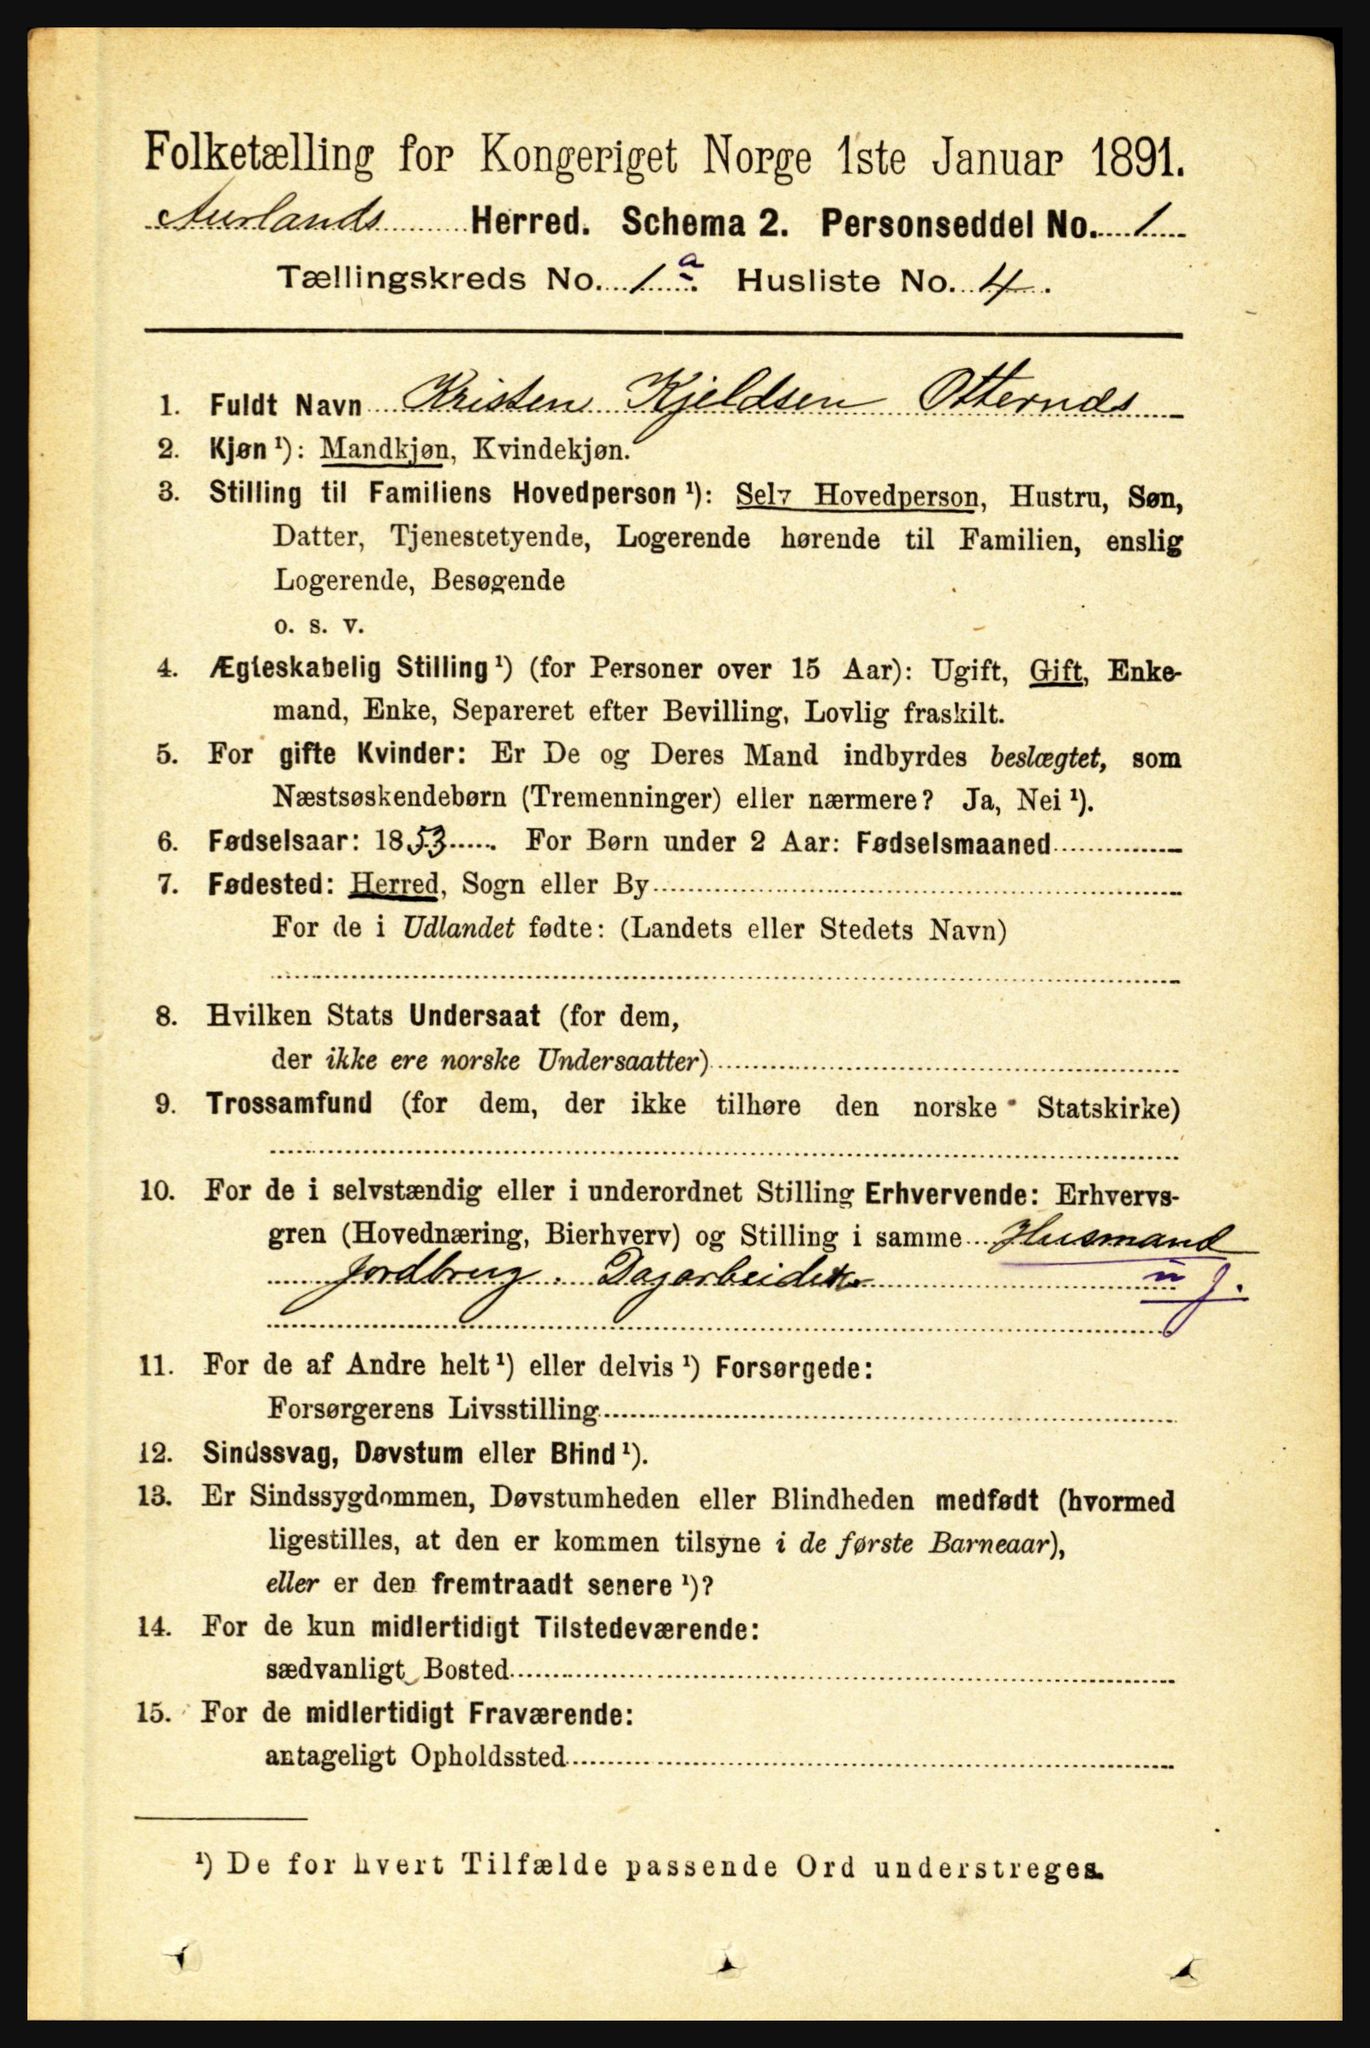 Folketælling for Kongeriget Norge 1ste Januar 1891.
Aurlands Herred. Schema 2. Personseddel No. 1
Tællingskreds No. 1a. Husliste No. 4.
1. Fuldt Navn Kristen Kjeldsen Otternæs
2. Kjøn ¹): Mandkjøn, Kvindekjøn.
3. Stilling til Familiens Hovedperson ¹): Selv Hovedperson, Hustru, Søn,
Datter, Tjenestetyende, Logerende hørende til Familien, enslig
Logerende, Besøgende
o. s. v.
4. Ægteskabelig Stilling ¹) (for Personer over 15 Aar): Ugift, Gift, Enke-
mand, Enke, Separeret efter Bevilling, Lovlig fraskilt.
5. For gifte Kvinder: Er De og Deres Mand indbyrdes beslægtet, som
Næstsøskendebørn (Tremenninger) eller nærmere? Ja, Nei ¹).
6. Fødselsaar: 1853. For Børn under 2 Aar: Fødselsmaaned
7. Fødested: Herred, Sogn eller By
For de i Udlandet fødte: (Landets eller Stedets Navn)
8. Hvilken Stats Undersaat (for dem,
der ikke ere norske Undersaatter)
9. Trossamfund (for dem, der ikke tilhøre den norske Statskirke)
10. For de i selvstændig eller i underordnet Stilling Erhvervende: Erhvervs-
gren (Hovednæring, Bierhverv) og Stilling i samme Husmand
Jordbrug. Dagarbeider
11. For de af Andre helt ¹) eller delvis ¹) Forsørgede:
Forsørgerens Livsstilling
12. Sindssvag, Døvstum eller Blind ¹).
13. Er Sindssygdommen, Døvstumheden eller Blindheden medfødt (hvormed
ligestilles, at den er kommen tilsyne i de første Barneaar),
eller er den fremtraadt senere ¹)?
14. For de kun midlertidigt Tilstedeværende:
sædvanligt Bosted
15. For de midlertidigt Fraværende:
antageligt Opholdssted
¹) De for hvert Tilfælde passende Ord understreges.